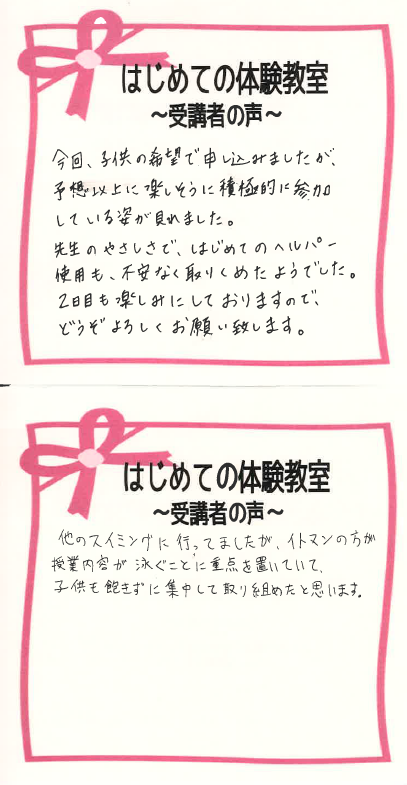 はじめての体験教室
～受講者の声～
今回、子供の希望で申し込みましたが、
予想以上に楽しそうに積極的に参加
している姿が見れました。
先生のやさしさで、はじめてのヘルパー
使用も、不安なく取りくめたようでした。
2日目も楽しみにしておりますので、
どうぞよろしくお願い致します。
はじめての体験教室
～受講者の声～
他のスイミングに行ってましたが、イトマンの方が
授業内容が泳ぐことに重点を置いていて、
子供も飽きずに集中して取り組めたと思います。